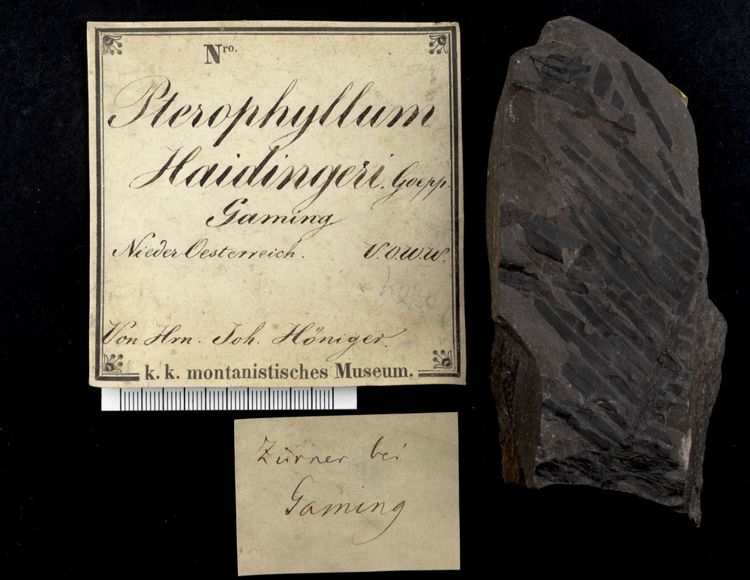 Nro.
Pterophyllum
Haidingeri. Goepp.
Gaming
Nieder Oesterreich. V.O.W.W.
Von Hrn. Joh. Höniger.
k. k. montanistisches Museum.
Zürner bei
Gaming